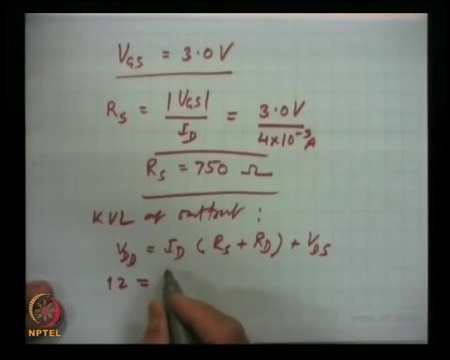 V_GS = 3.0 V
R_S = |V_GS| / I_D = 3.0 V / 4×10⁻³ A
R_S = 750 Ω
KVL at output :
V_DD = I_D ( R_S + R_D ) + V_DS
12 =
NPTEL